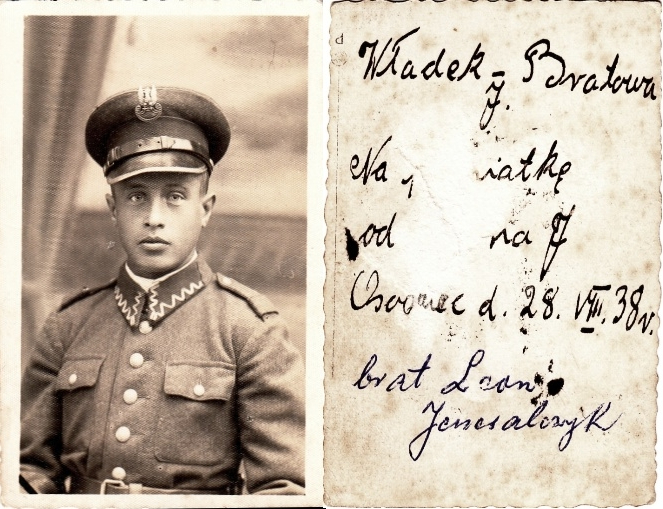 Władek - Bratowa
J.
Na iatkę
od na J
Osowiec d. 28. VIII. 38 r.
brat Leon
Jeneralczyk